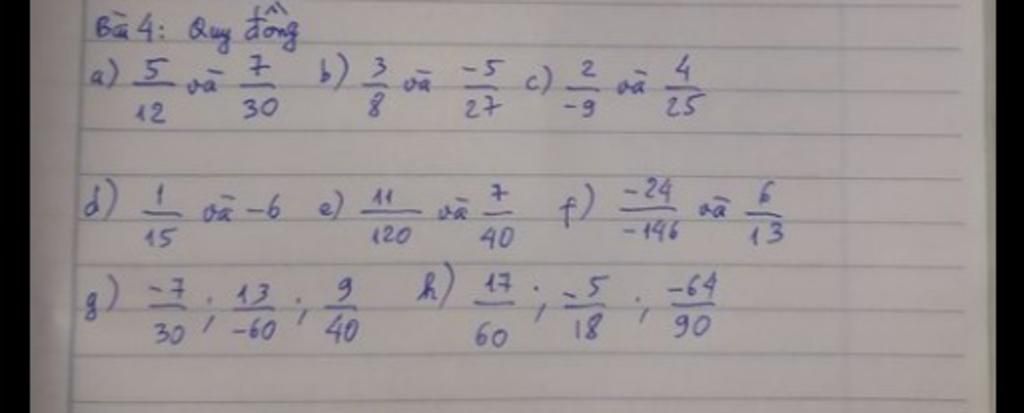 Bài 4: Quy đồng
a) 5/12 và 7/30 b) 3/8 và -5/27 c) 2/-9 và 4/25
d) 1/15 và -6 e) 11/120 và 7/40 f) -24/-146 và 6/13
g) -7/30 ; 13/-60 ; 9/40 h) 17/60 ; -5/18 ; -64/90